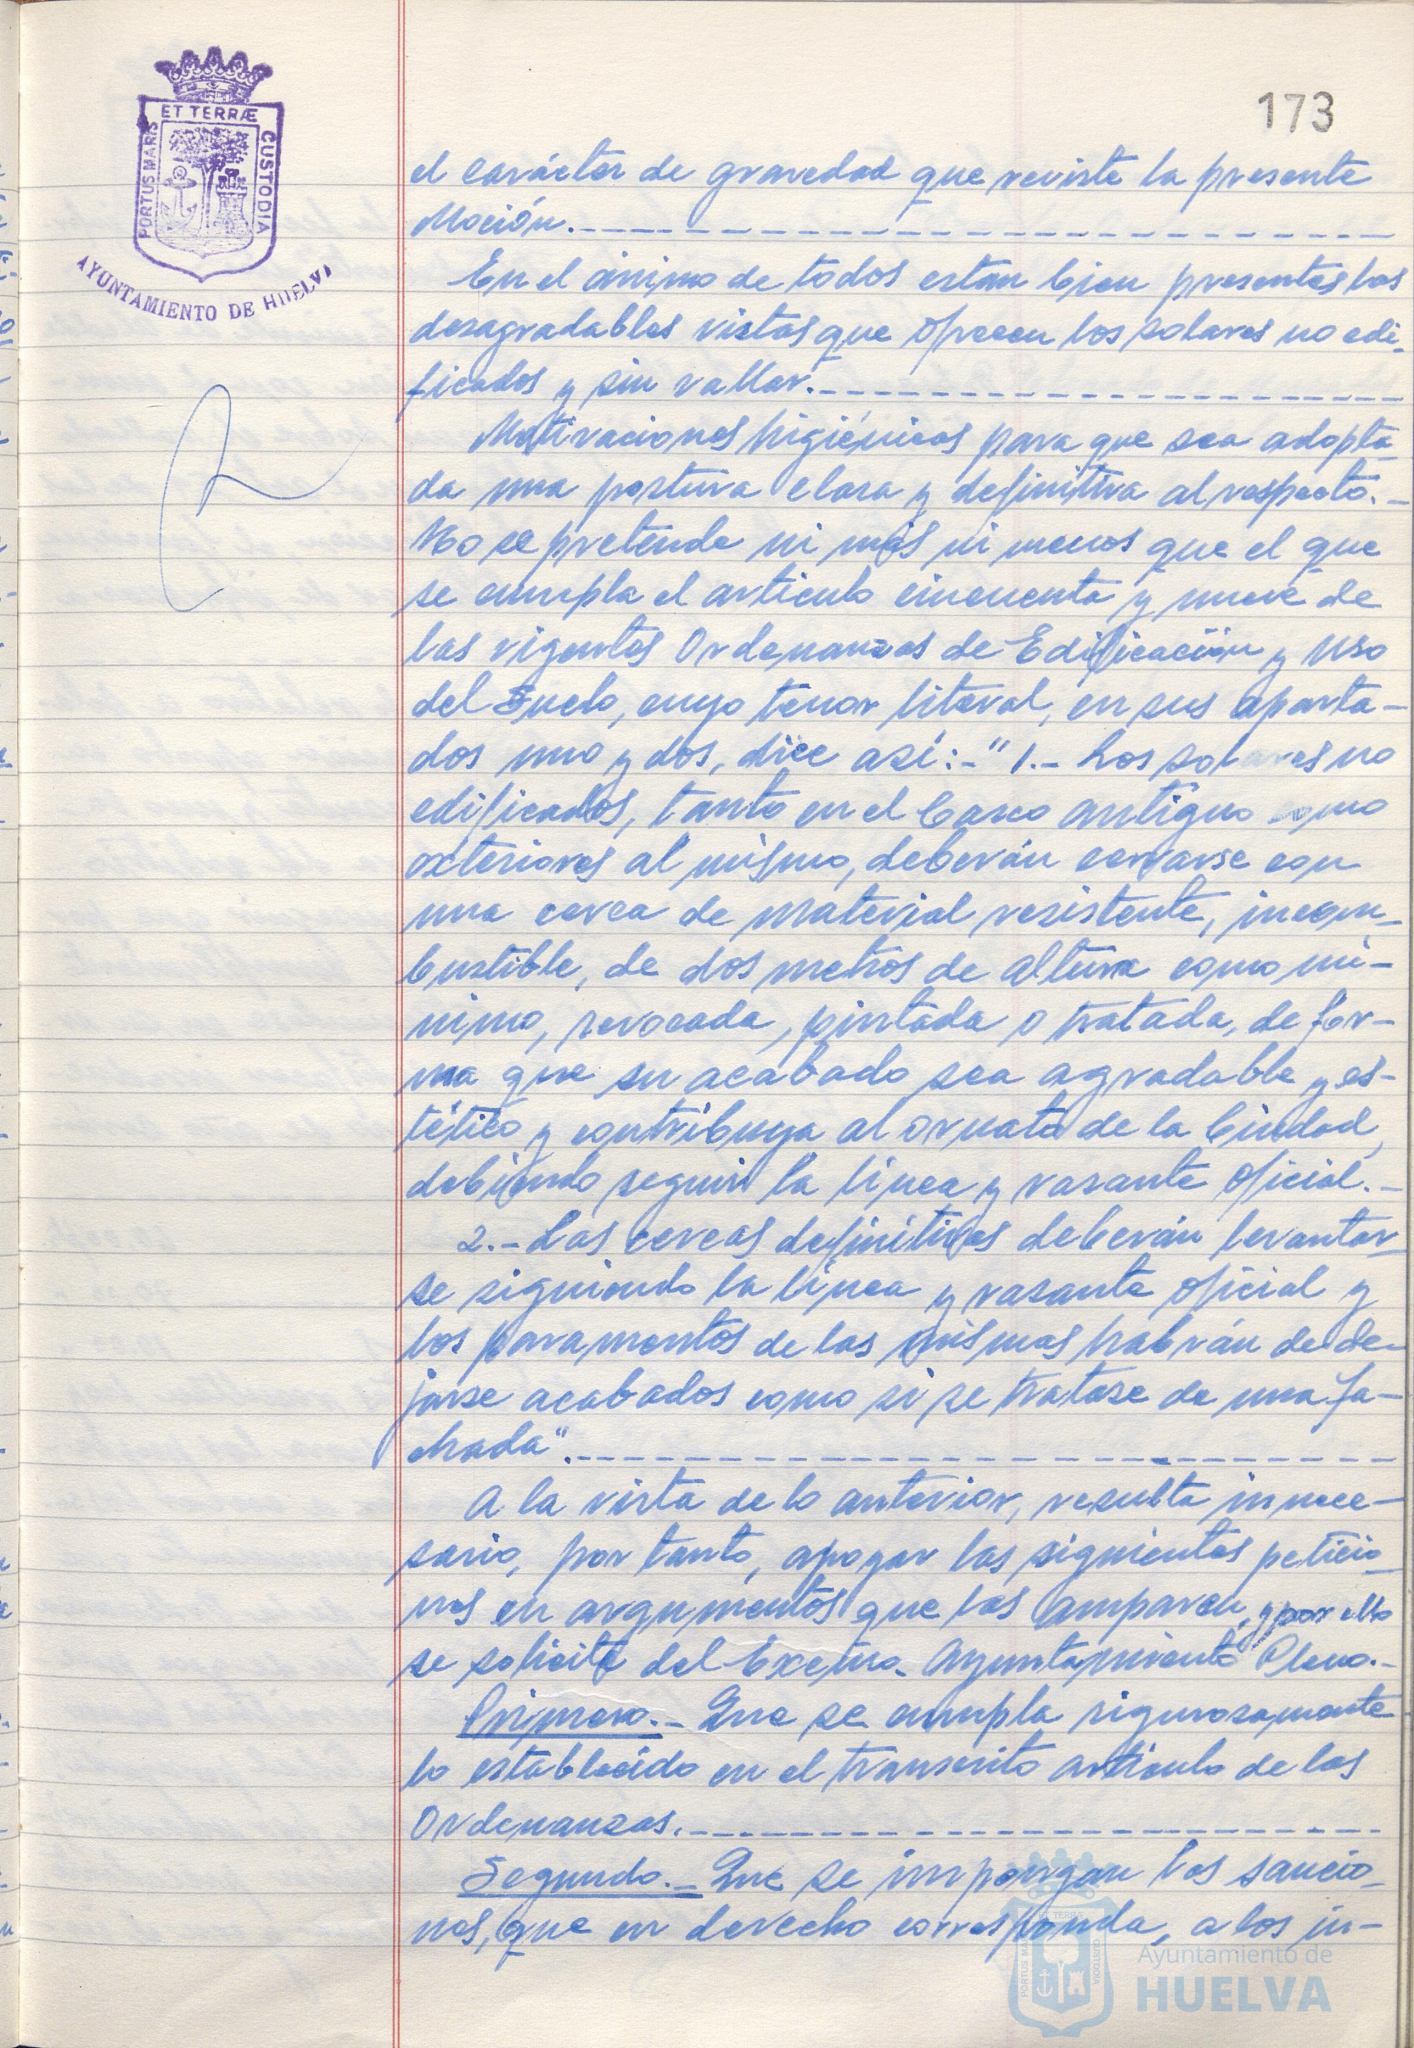 173
PORTUS MARIS ET TERRÆ CUSTODIA
AYUNTAMIENTO DE HUELVA
el carácter de gravedad que reviste la presente
Moción.
En el ánimo de todos están bien presentes las
desagradables vistas que ofrecen los solares no edi-
ficados y sin vallar.
Motivaciones higiénicas para que sea adopta-
da una postura clara y definitiva al respecto.-
No se pretende ni más ni menos que el que
se cumpla el artículo cincuenta y nueve de
las vigentes Ordenanzas de Edificación y Uso
del Suelo, cuyo tenor literal, en sus aparta-
dos uno y dos, dice así:-"1.- Los solares no
edificados, tanto en el Casco antiguo como
exteriores al mismo, deberán cerrarse con
una cerca de material resistente, incom-
bustible, de dos metros de altura como mí-
nimo, revocada, pintada o tratada, de for-
ma que su acabado sea agradable y es-
tético y contribuya al ornato de la Ciudad,
debiendo seguir la línea y rasante oficial.-
2.- Las cercas definitivas deberán levantar-
se siguiendo la línea y rasante oficial y
los paramentos de las mismas habrán de de-
jarse acabados como si se tratase de una fa-
chada".
A la vista de lo anterior, resulta innece-
sario, por tanto, apoyar las siguientes peticio-
nes en argumentos que las amparen, y por ello
se solicita del Excmo. Ayuntamiento Pleno.-
Primero.- Que se cumpla rigurosamente
lo establecido en el transcrito artículo de las
Ordenanzas.
Segundo.- Que se impongan las sancio-
nes, que en derecho corresponda, a los in-
Ayuntamiento de
HUELVA